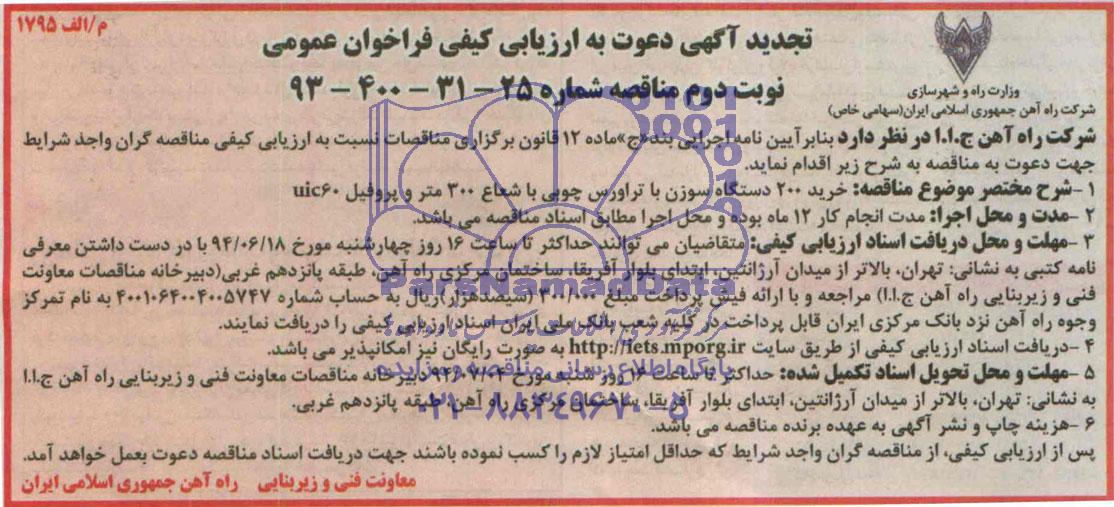 م/الف ۱۷۹۵
تجدید آگهی دعوت به ارزیابی کیفی فراخوان عمومی
نوبت دوم مناقصه شماره ۲۵ – ۳۱ – ۴۰۰ – ۹۳
وزارت راه و شهرسازی
شرکت راه آهن جمهوری اسلامی ایران(سهامی خاص)
شرکت راه آهن ج.ا.ا در نظر دارد بنابر آیین نامه اجرایی بند«ج»ماده ۱۲ قانون برگزاری مناقصات نسبت به ارزیابی کیفی مناقصه گران واجد شرایط
جهت دعوت به مناقصه به شرح زیر اقدام نماید.
۱ -شرح مختصر موضوع مناقصه: خرید ۲۰۰ دستگاه سوزن با تراورس چوبی با شعاع ۳۰۰ متر و پروفیل uic۶۰
۲ -مدت و محل اجرا: مدت انجام کار ۱۲ ماه بوده و محل اجرا مطابق اسناد مناقصه می باشد.
۳ -مهلت و محل دریافت اسناد ارزیابی کیفی: متقاضیان می توانند حداکثر تا ساعت ۱۶ روز چهارشنبه مورخ ۹۴/۰۶/۱۸ با در دست داشتن معرفی
نامه کتبی به نشانی: تهران، بالاتر از میدان آرژانتین، ابتدای بلوار آفریقا، ساختمان مرکزی راه آهن، طبقه پانزدهم غربی(دبیرخانه مناقصات معاونت
فنی و زیربنایی راه آهن ج.ا.ا) مراجعه و با ارائه فیش پرداخت مبلغ ۳۰۰/۰۰۰ (سیصدهزار)ریال به حساب شماره ۴۰۰۱۰۶۴۰۰۴۰۰۵۷۴۷ به نام تمرکز
وجوه راه آهن نزد بانک مرکزی ایران قابل پرداخت در کلیه شعب بانک ملی ایران اسناد ارزیابی کیفی را دریافت نمایند.
۴ -دریافت اسناد ارزیابی کیفی از طریق سایت http://iets.mporg.ir به صورت رایگان نیز امکانپذیر می باشد.
۵ -مهلت و محل تحویل اسناد تکمیل شده: حداکثر تا ساعت ۱۶ روز شنبه مورخ ۹۴/۰۷/۰۴ دبیرخانه مناقصات معاونت فنی و زیربنایی راه آهن ج.ا.ا
به نشانی: تهران، بالاتر از میدان آرژانتین، ابتدای بلوار آفریقا، ساختمان مرکزی راه آهن، طبقه پانزدهم غربی.
۶ -هزینه چاپ و نشر آگهی به عهده برنده مناقصه می باشد.
پس از ارزیابی کیفی، از مناقصه گران واجد شرایط که حداقل امتیاز لازم را کسب نموده باشند جهت دریافت اسناد مناقصه دعوت بعمل خواهد آمد.
معاونت فنی و زیربنایی راه آهن جمهوری اسلامی ایران
ParsNamadData
پایگاه اطلاع رسانی مناقصه و مزایده
۰۲۱-۸۸۳۴۹۶۷۰-۵